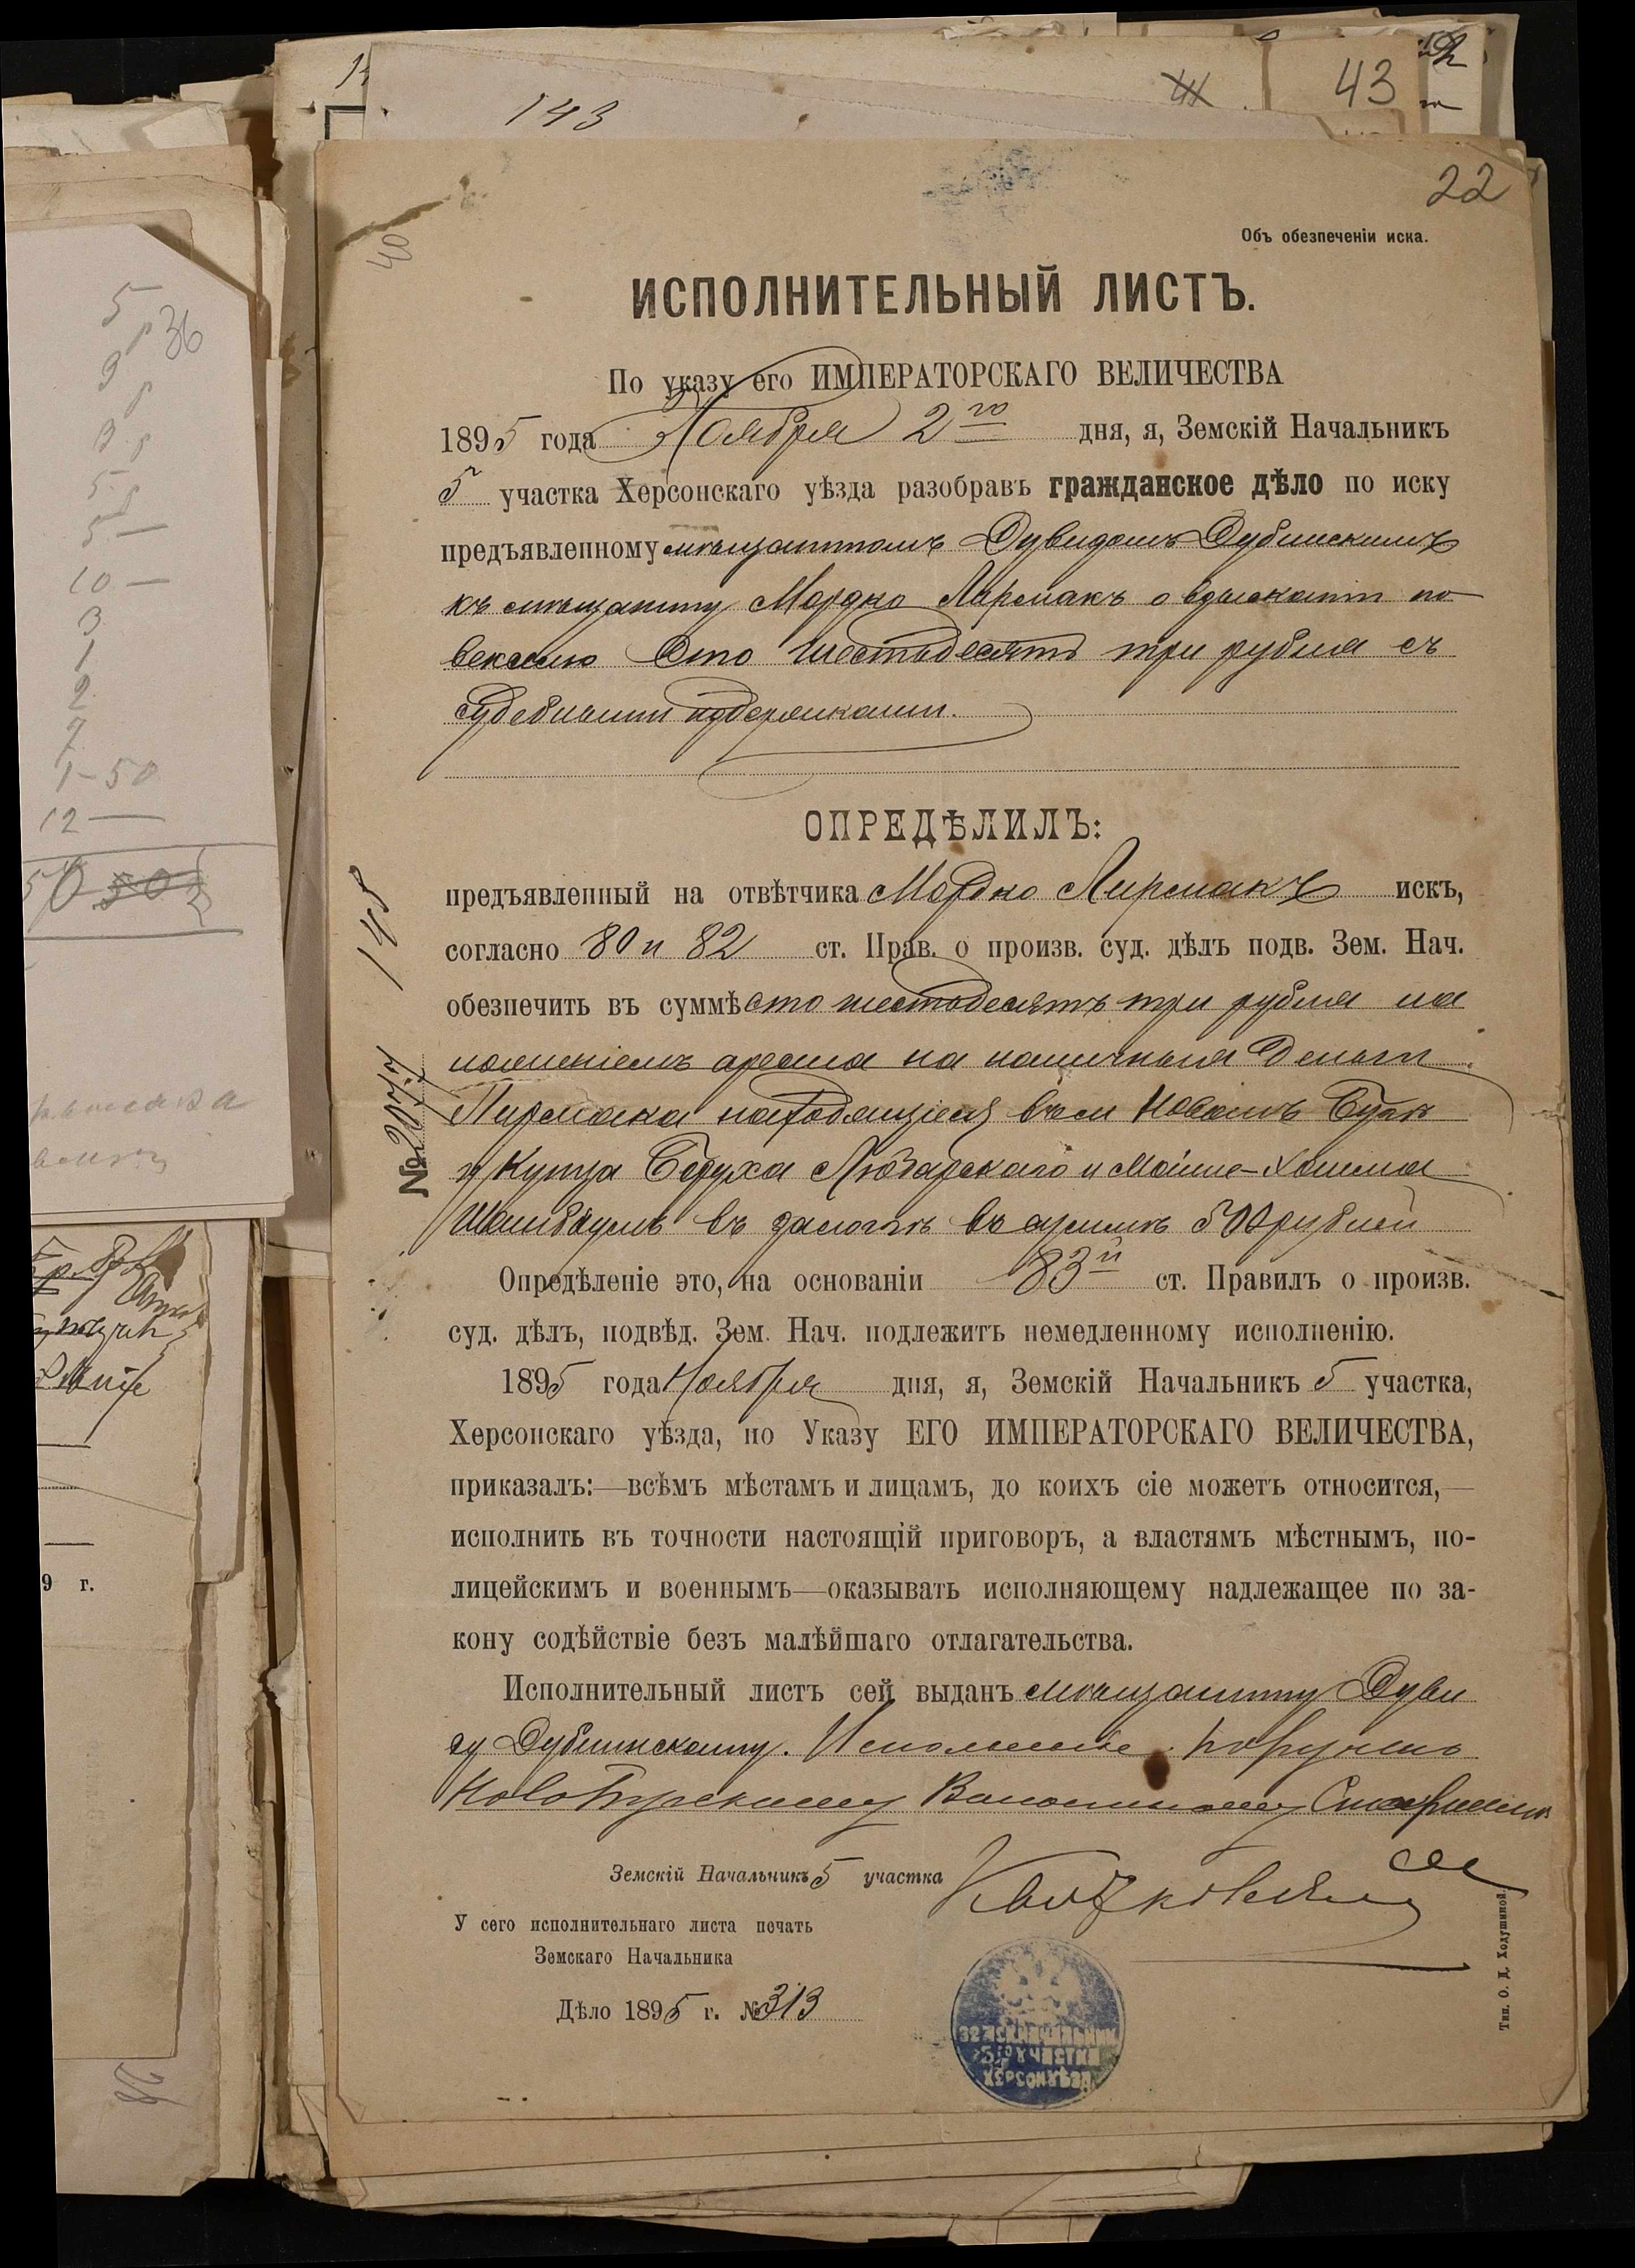 143
43
22
40
Объ обезпеченіи иска.
ИСПОЛНИТЕЛЬНЫЙ ЛИСТЪ.
По указу его ИМПЕРАТОРСКАГО ВЕЛИЧЕСТВА
1895 года Ноября 2го дня, я, Земскій Начальникъ
5 участка Херсонскаго уѣзда разобравъ гражданское дѣло по иску
предъявленному мѣщаниномъ Дувидомъ Дубинскимъ
къ мѣщанину Мордко Лирмакъ о взысканіи по
векселю Сто шестьдесятъ три рубля съ
судебными издержками.
ОПРЕДѢЛИЛЪ:
предъявленный на отвѣтчика Мордко Лирмакъ искъ,
согласно 80 и 82 ст. Прав. о произв. суд. дѣлъ подв. Зем. Нач.
обезпечить въ суммѣ сто шестьдесятъ три рубля на
ложеніемъ ареста на наличныя деньги
Лирмака находящіеся въ Новомъ Бугѣ
у Купца Боруха Любарскаго и
въ залогѣ въ суммѣ 500 рублей
Опредѣленіе это, на основаніи 83й ст. Правилъ о произв.
суд. дѣлъ, подвѣд. Зем. Нач. подлежитъ немедленному исполненію.
1895 года Ноября дня, я, Земскій Начальникъ 5 участка,
Херсонскаго уѣзда, по Указу ЕГО ИМПЕРАТОРСКАГО ВЕЛИЧЕСТВА,
приказалъ:—всѣмъ мѣстамъ и лицамъ, до коихъ сіе можетъ относится,—
исполнить въ точности настоящій приговоръ, а властямъ мѣстнымъ, по-
лицейскимъ и военнымъ—оказывать исполняющему надлежащее по за-
кону содѣйствіе безъ малѣйшаго отлагательства.
Исполнительный листъ сей выданъ мѣщанину Дуви
ду Дубинскому. Исполненіе поручено
Новобугскому Волостному Старшинѣ
Земскій Начальникъ 5 участка
У сего исполнительнаго листа печать
Земскаго Начальника
Дѣло 1895 г. №313
ЗЕМСК НАЧАЛЬНИК
5го УЧАСТКА
ХЕРСОН УѢЗД
Тип. О. Д. Ходушиной.
№2077
148
5
36
10 —
3
1
2
7
1-50
12 —
9 г.